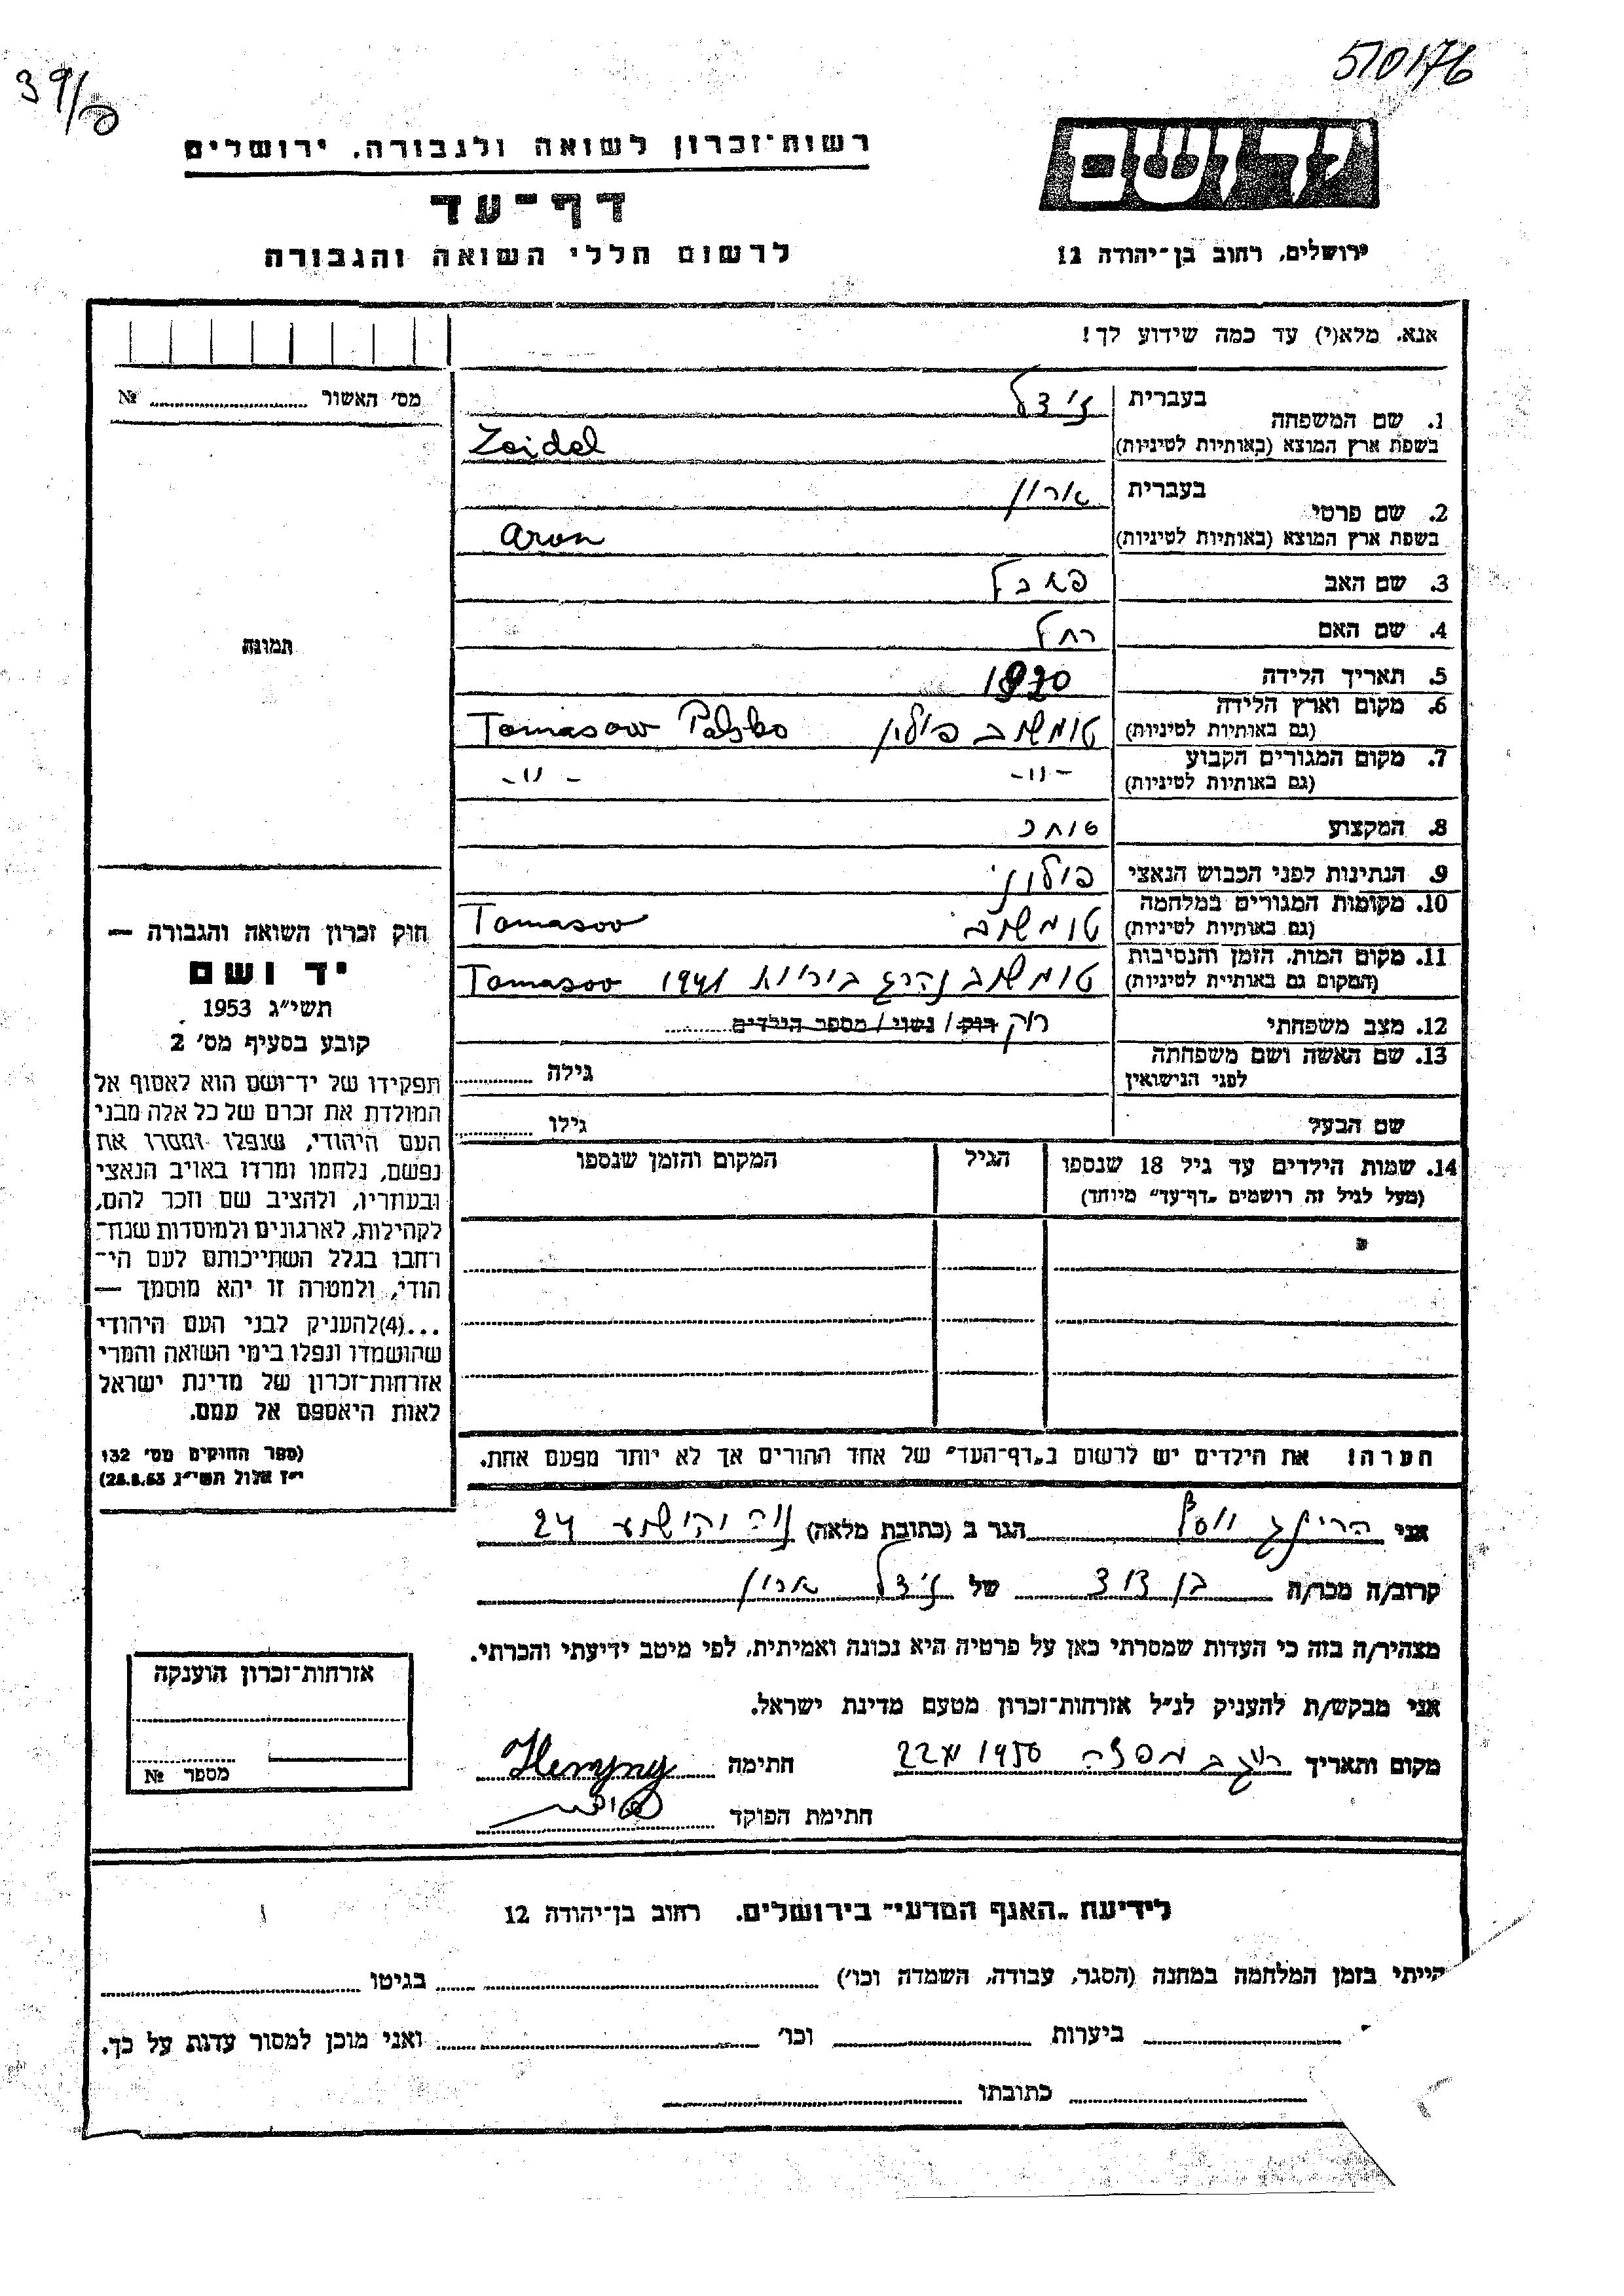 510176
39/ס
רשות־זכרון לשואה ולגבורה, ירושלים
יד ושם
דף־עד
לרשום חללי השואה והגבורה
ירושלים, רחוב בן־יהודה 12
אנא, מלא(י) עד כמה שידוע לך!
מס׳ האשור № 
1. שם המשפחה
בעברית זידל
בשפת ארץ המוצא (באותיות לטיניות) Zeidel
2. שם פרטי
בעברית ארון
בשפת ארץ המוצא (באותיות לטיניות) Aron
3. שם האב
4. שם האם רחל
תמונה
5. תאריך הלידה 1920
6. מקום וארץ הלידה
(גם באותיות לטיניות) טומשוב פולין Tomasow Polsko
7. מקום המגורים הקבוע
(גם באותיות לטיניות) -״- -״-
8. המקצוע סוחר
9. הנתינות לפני הכבוש הנאצי פולוני
10. מקומות המגורים במלחמה
(גם באותיות לטיניות) טומשוב Tomasov
11. מקום המות, הזמן והנסיבות
(המקום גם באותיית לטיניות) טומשוב נהרג ביריות 1941 Tomasov
12. מצב משפחתי רוק רוק / נשוי / מספר הילדים
13. שם האשה ושם משפחתה
לפני הנישואין גילה
שם הבעל גילו
14. שמות הילדים עד גיל 18 שנספו הגיל המקום והזמן שנספו
(מעל לגיל זה רושמים „דף־עד״ מיוחד)
חוק זכרון השואה והגבורה —
יד ושם
תשי״ג 1953
קובע בסעיף מס׳ 2
תפקידו של יד־ושם הוא לאסוף אל
המולדת את זכרם של כל אלה מבני
העם היהודי, שנפלו ומסרו את
נפשם, נלחמו ומרדו באויב הנאצי
ובעוזריו, ולהציב שם וזכר להם,
לקהילות, לארגונים ולמוסדות שנח־
רחבו בגלל השתייכותם לעם הי־
הודי, ולמטרה זו יהא מוסמך —
...(4)להעניק לבני העם היהודי
שהושמדו ונפלו בימי השואה והמרי
אזרחות־זכרון של מדינת ישראל
לאות היאספם אל עמם.
(ספר החוקים מס׳ 132
י״ז אלול תשי״ג 28.8.53)
הערה! את הילדים יש לרשום ב„דף־העד״ של אחד ההורים אך לא יותר מפעם אחת.
אני יוסף הגר ב (כתובת מלאה) נוה יהושע 24
קרוב/ה מכר/ה בן דוד של זידל ארון
מצהיר/ה בזה כי העדות שמסרתי כאן על פרטיה היא נכונה ואמיתית, לפי מיטב ידיעתי והכרתי.
אני מבקש/ת להעניק לנ״ל אזרחות־זכרון מטעם מדינת ישראל.
מקום ותאריך 1956 22 חתימה
חתימת הפוקד
אזרחות־זכרון הוענקה
מספר №
לידיעת „האגף המדעי״ בירושלים, רחוב בן־יהודה 12
הייתי בזמן המלחמה במחנה (הסגר, עבודה, השמדה וכו׳) בגיטו
ביערות וכו׳ ואני מוכן למסור עדות על כך.
כתובתו